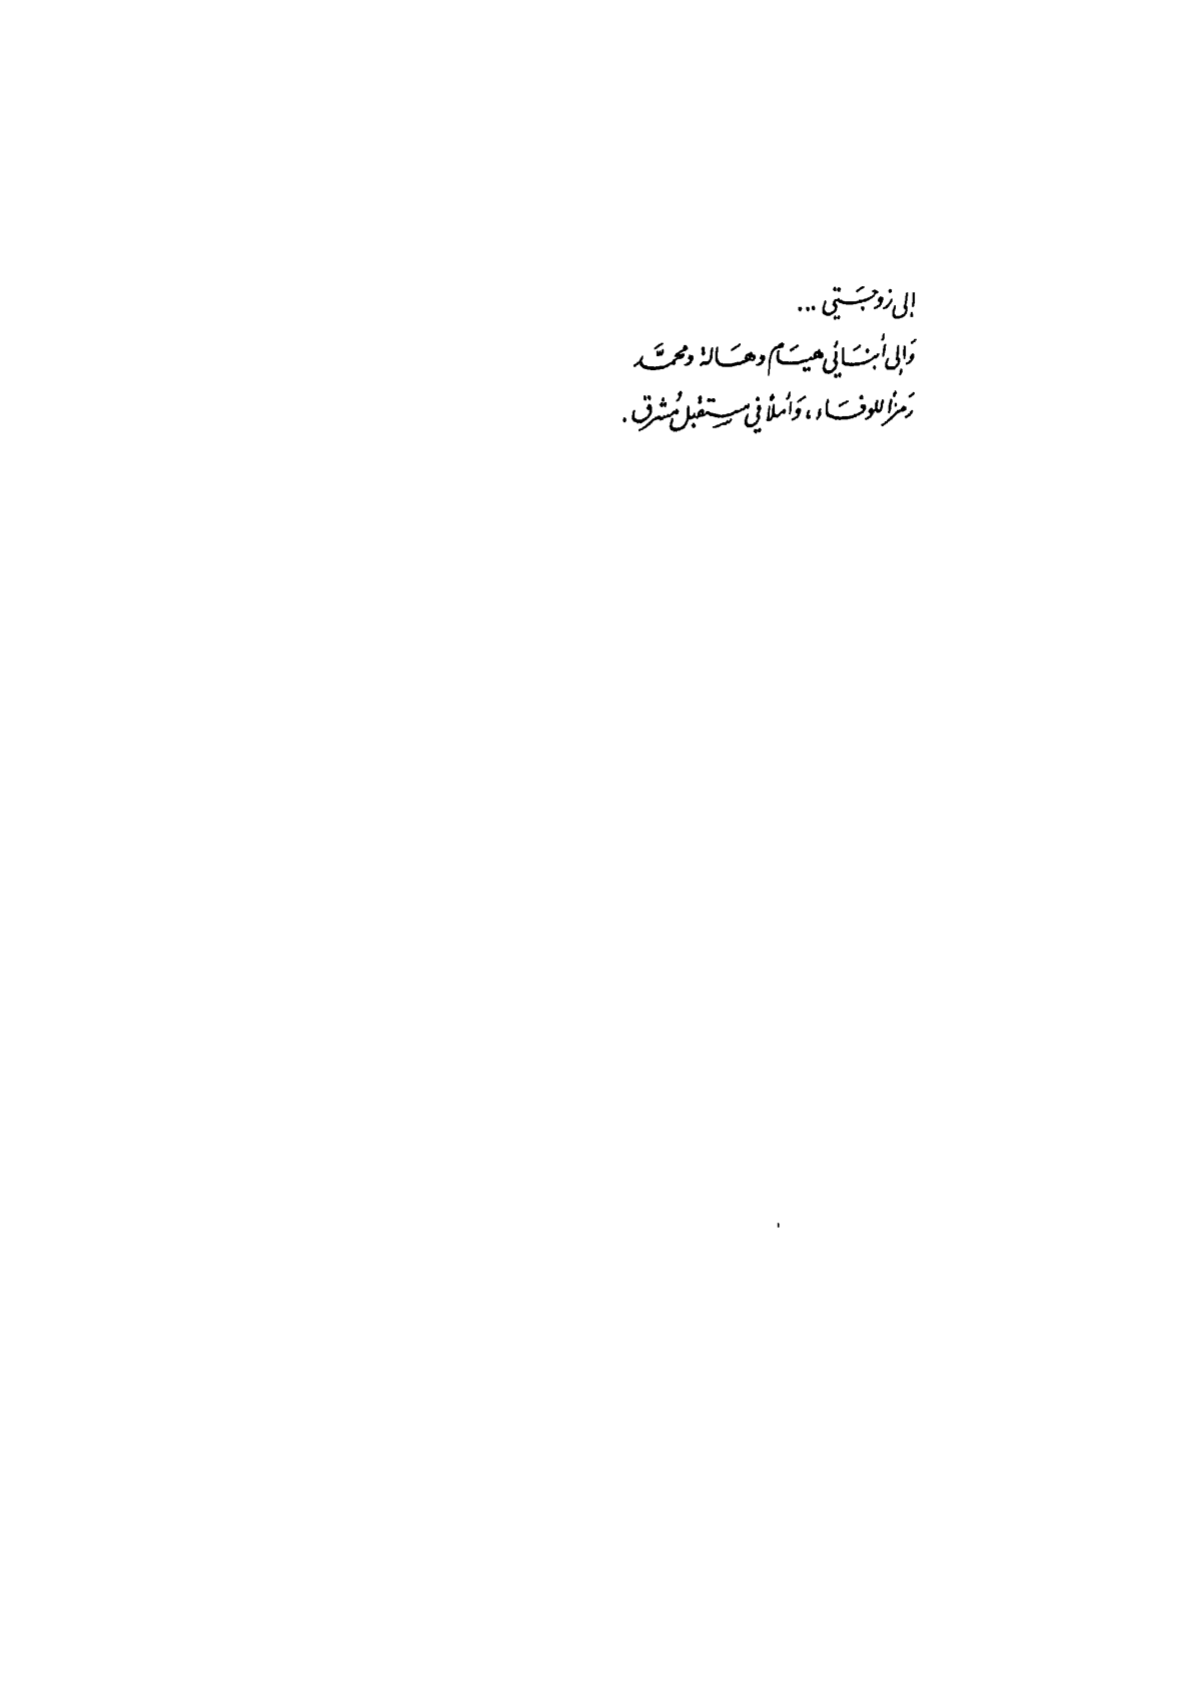 إلى زوجَتي ...
وَإلى أبنَائي هيَام وهَالة ومحمَّد
رَمزاً للوفَاء، وَأملاً في مستقبل مُشرق.